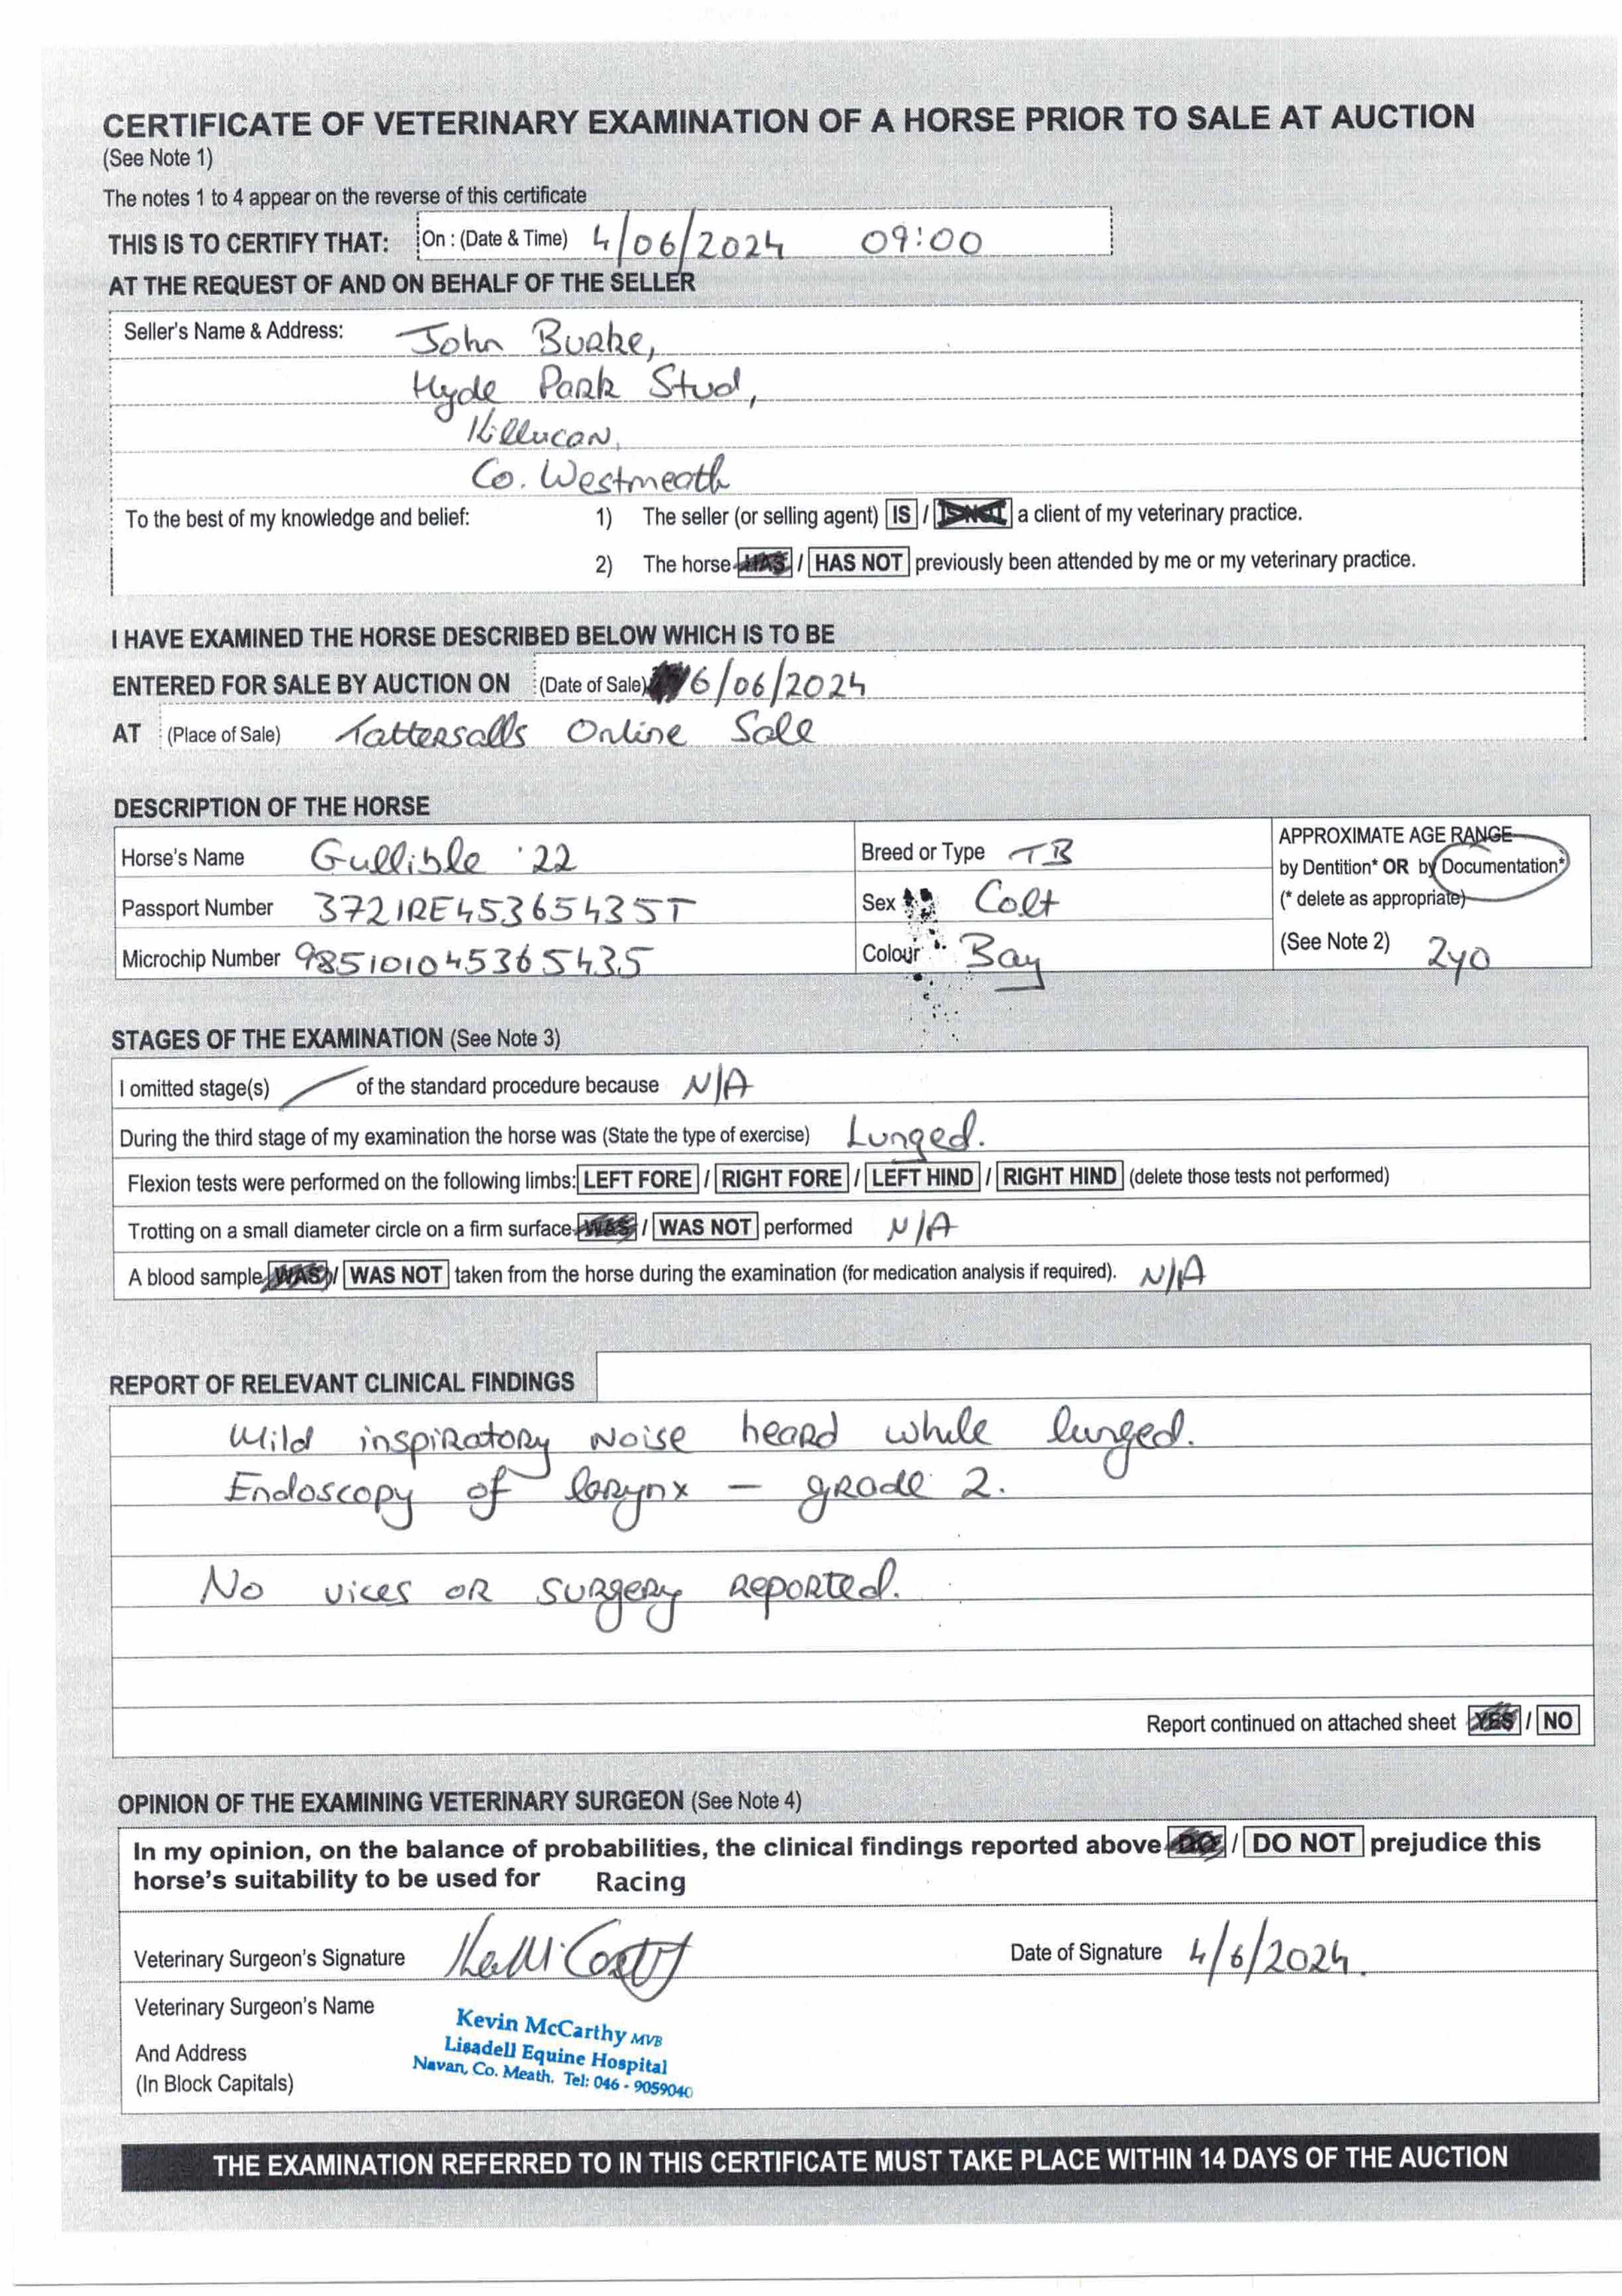 CERTIFICATE OF VETERINARY EXAMINATION OF A HORSE PRIOR TO SALE AT AUCTION
(See Note 1)
The notes 1 to 4 appear on the reverse of this certificate
THIS IS TO CERTIFY THAT: On : (Date & Time) 4/06/2024 09:00
AT THE REQUEST OF AND ON BEHALF OF THE SELLER
Seller's Name & Address: John Burke,
Hyde Park Stud,
Killucan,
Co. Westmeath
To the best of my knowledge and belief: 1) The seller (or selling agent) IS / IS NOT a client of my veterinary practice.
2) The horse HAS / HAS NOT previously been attended by me or my veterinary practice.
I HAVE EXAMINED THE HORSE DESCRIBED BELOW WHICH IS TO BE
ENTERED FOR SALE BY AUCTION ON (Date of Sale) 6/06/2024
AT (Place of Sale) Tattersalls Online Sale
DESCRIPTION OF THE HORSE
Horse's Name Gullible '22 Breed or Type TB APPROXIMATE AGE RANGE
by Dentition* OR by Documentation*
Passport Number 372IRE45365435T Sex Colt (* delete as appropriate)
Microchip Number 985101045365435 Colour Bay (See Note 2) 2yo
STAGES OF THE EXAMINATION (See Note 3)
I omitted stage(s) / of the standard procedure because N/A
During the third stage of my examination the horse was (State the type of exercise) Lunged.
Flexion tests were performed on the following limbs: LEFT FORE / RIGHT FORE / LEFT HIND / RIGHT HIND (delete those tests not performed)
Trotting on a small diameter circle on a firm surface WAS / WAS NOT performed N/A
A blood sample WAS / WAS NOT taken from the horse during the examination (for medication analysis if required). N/A
REPORT OF RELEVANT CLINICAL FINDINGS
Mild inspiratory noise heard while lunged.
Endoscopy of larynx – grade 2.
No vices or surgery reported.
Report continued on attached sheet YES / NO
OPINION OF THE EXAMINING VETERINARY SURGEON (See Note 4)
In my opinion, on the balance of probabilities, the clinical findings reported above DO / DO NOT prejudice this
horse's suitability to be used for Racing
Veterinary Surgeon's Signature Date of Signature 4/6/2024.
Veterinary Surgeon's Name
And Address
(In Block Capitals)
Kevin McCarthy MVB
Lisadell Equine Hospital
Navan, Co. Meath. Tel: 046 - 9059040
THE EXAMINATION REFERRED TO IN THIS CERTIFICATE MUST TAKE PLACE WITHIN 14 DAYS OF THE AUCTION